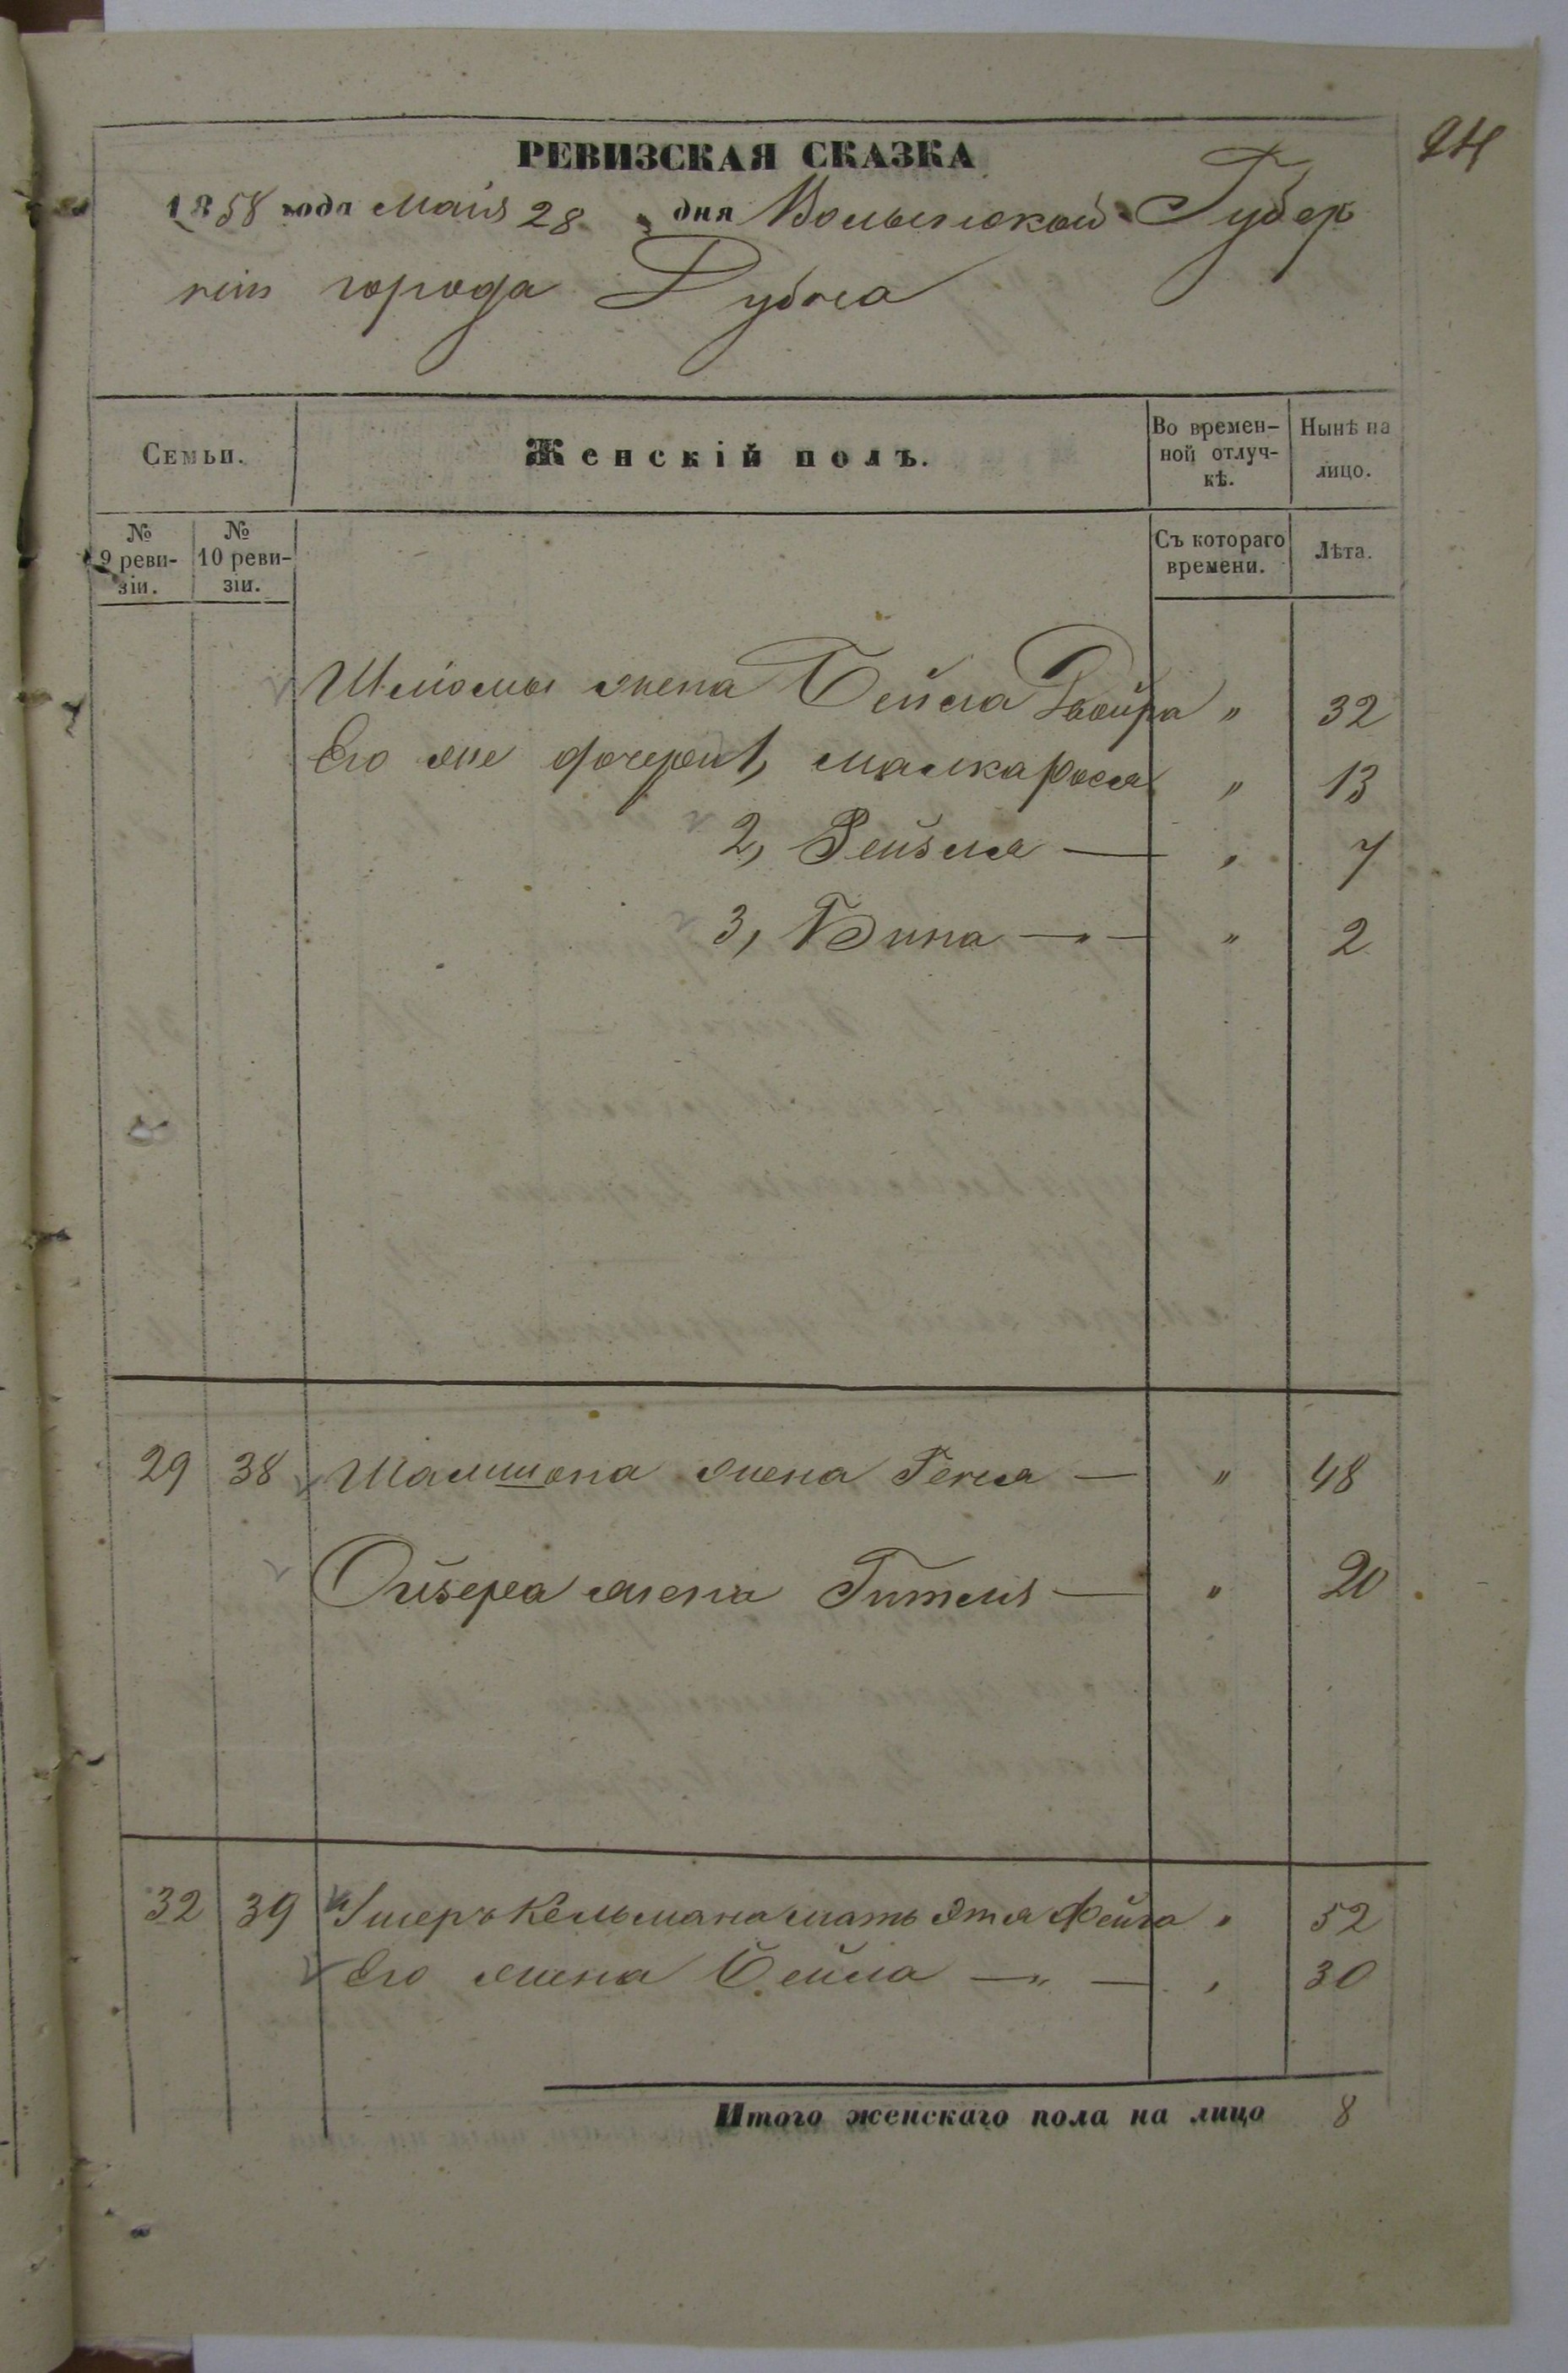 24
РЕВИЗСКАЯ СКАЗКА
1858 года Маія 28 дня Волынской Губер
ніи города Дубна
Семьи.
Женскій полъ.
Во времен-
ной отлуч-
кѣ.
Ныкѣ на
лицо.
№
9 реви-
зіи.
№
10 реви-
зіи.
Съ котораго
времени.
Лѣта.
Шліомы жена Бейла Двойра " 32
Его же дочери 1, Малка рося " 13
2, Рейзля — " 7
3, Бина — " — " 2
29 38 Шамшона жена Геня — " 48
Ойзера жена Гитля — " 20
32 39 Умеръ Кельмана мать Этя Фейга " 52
Его жена Бейла — " — " 30
Итого женскаго пола на лицо 8